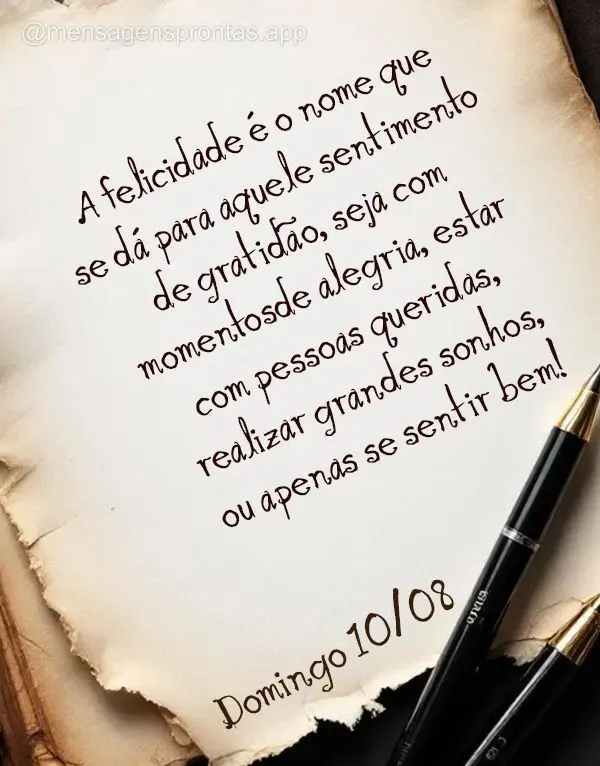 @mensagensprontas.app
A felicidade é o nome que
se dá para aquele sentimento
de gratidão, seja com
momentosde alegria, estar
com pessoas queridas,
realizar grandes sonhos,
ou apenas se sentir bem!
Domingo 10/08